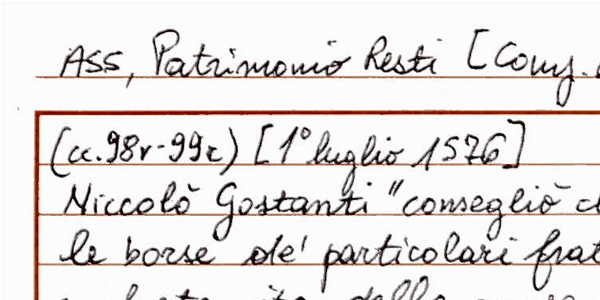 ASS, Patrimonio Resti [Comy.
(cc.98r-99r) [1° luglio 1576]
Niccolò Gostanti "conseglio
le borse de' particolari frat
della